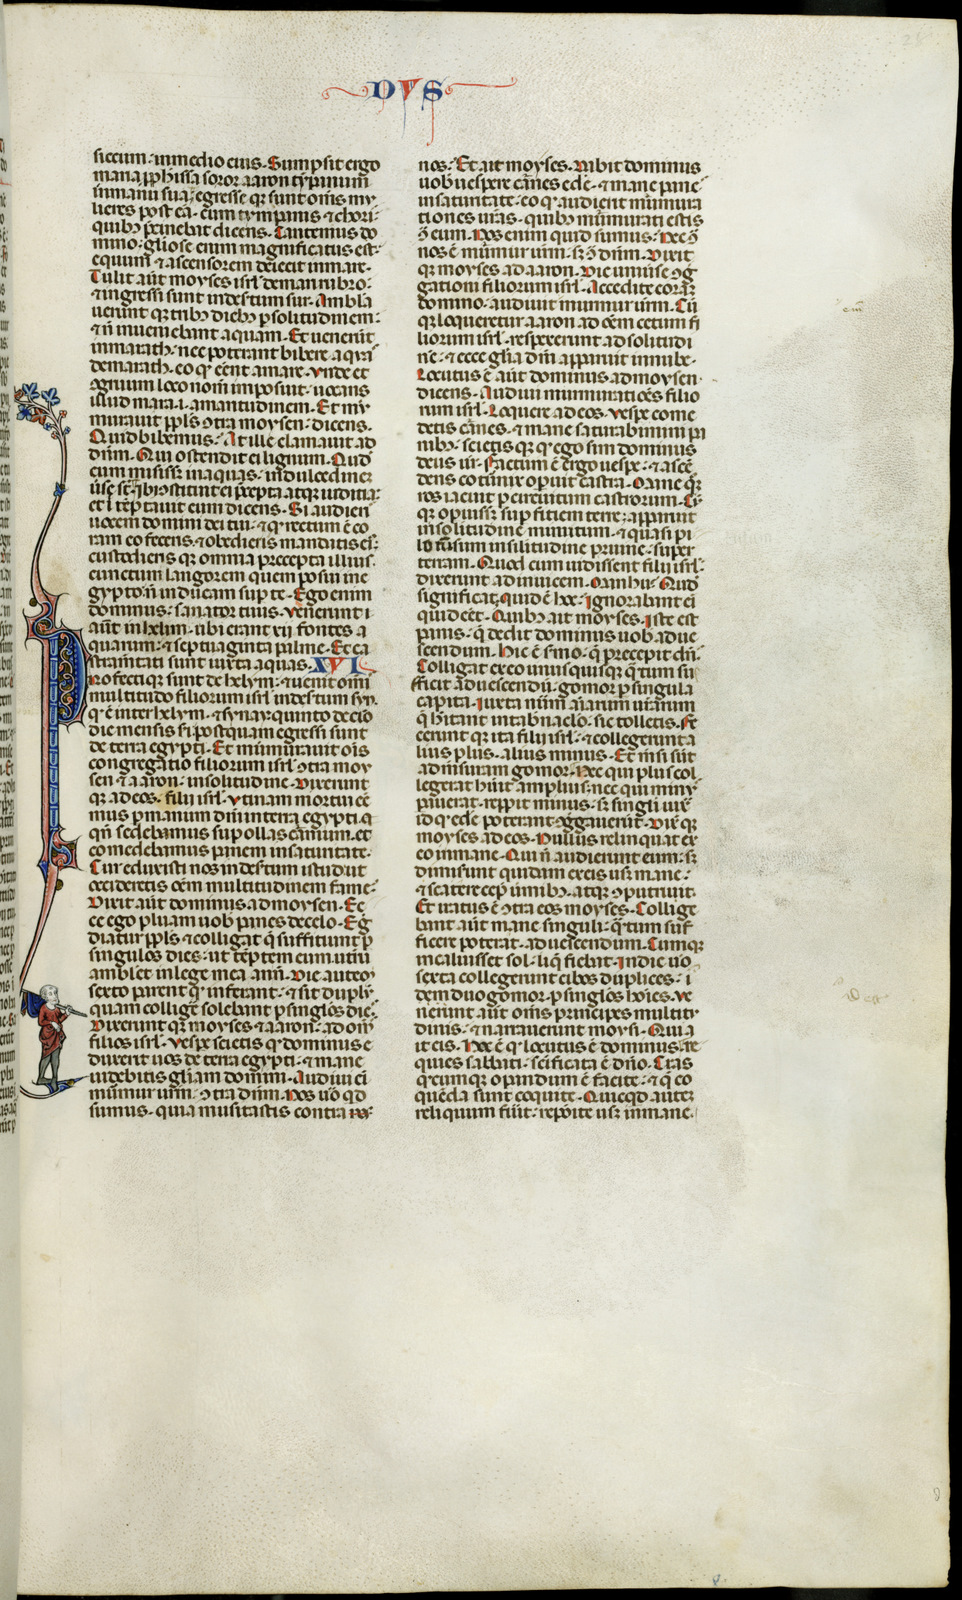 DVS
siccum. in medio eius. Sumpsit ergo
maria pphissa soror aaron tympanum
in manu sua. egresse q; sunt oms mu
lieres post eā. cum tympanis & chori
quibꝫ precinebat dicens. Cantemus do
mino. gliose enim magnificatus est.
equum & ascensorem deiecit in mare.
Tulit aūt moyses isrl de mari rubro.
& ingressi sunt in desertum sur. Ambla
uerunt q; tribꝫ diebꝫ p solitudinem.
& n̄ inueniebant aquam. Et uenerūt
in marath. nec poterant bibere aquā
de marath. eo qꝫ eēnt amare. Vnde et
ɔgruum loco nom imposuit. uocans
illud mara. i. amaritudinem. Et mur
murauit ppls ɔtra moysen. dicens.
Quid bibemus. At ille clamauit ad
dnm. Qui ostendit ei lignum. Quod
cum misissꝫ in aquas. in dulcedinem
uise st. Ibi ɔstituit ei precepta atqꝫ iuditia.
et t tēptauit eum dicens. Si audieri
uocem domini dei tui. & qꝫ rectum ē co
ram eo feceris. & obedieris mandatis ei.
custodieris q; omnia precepta illius.
cunctum langorem quem posui in e
gypto. n̄ inducam sup te. Ego enim
dominus. sanator tuus. Venerunt i
aūt in helim. ubi erant xii fontes a
quarum. & septuaginta palme. Et ca
strametati sunt iuxta aquas. XVI.
Profecti q; sunt de helym. & uenit omī
multitudo filiorum isrl in desertum syn.
qꝫ ē inter helym. & synay. quinto decio
die mensis sī. postquam egressi sunt
de terra egypti. Et murmurauit oīs
congregatio filiorum isrl ɔtra moy
sen & aaron. in solitudine. Dixerunt
q; ad eos. filii isrl. Vtinam mortui eē
mus p manum dni in terra egypti. q
qn̄ sedebamus sup ollas carnium. et
comedebamus panem in saturitate.
Cur eduxisti nos in desertum istud ut
occideretis oēm multitudinem fame.
Dixit aūt dominus ad moysen. Ec
ce ego pluam uobꝫ panes de celo. Eg
diatur ppls & colligat q̄ sufficiunt p
singulos dies. ut tēptem eum. utrū
ambl& in lege mea an n̄. Die autē
sexto parent qꝫ inferant. & sit duply
quam colligē solebant p singlos die.
Dixerunt q; moyses & aaron. ad omī
filios isrl. Vespe scietis qꝫ dominus e
duxerit uos de terra egypti. & mane
uidebitis gliam domini. Audiui ei
murmur urm. ɔtra dnm. Nos uō qd
sumus. quia musitastis contra
nos. Et ait moyses. Dabit dominus
uobꝫ uespere carnes edē. & mane pane
in saturitate. eo qꝫ audierit murmura
tiones uras. quibꝫ murmurati estis
ɔ eum. Nos enim quid sumus. Nec ɔ
nos ē murmur urm. sꝫ ɔ dnm. Dixit
q; moyses ad aaron. Dic uniuise ɔg
gationi filiorum isrl. Accedite corā
domino. audiuit murmur urm. Cū
q; loqueretur aaron ad oēm cetum fi
liorum isrl. respexerunt ad solitudi
nē. & ecce glia dni apparuit in nube.
Locutus ē aūt dominus ad moysen
dicens. Audiui murmurationes filio
rum isrl. Loquere ad eos. Vespe come
detis carnes. & mane saturabimini pa
nibꝫ. scietis q; qꝫ ego sum dominus
deus ur. Factum ē ergo uespe. & ascē
dens coturnix opuit castra. Mane qꝫ
ros iacuit p circuitum castrorum. Cū
q; opuissꝫ supficiem terre. apparuit
in solitudine minutum. & quasi pi
lo tusum in similitudine pruine. super
terram. Quod cum uidissent filii isrl.
dixerunt ad inuicem. Manhu. Quod
significat. quid ē hoc. Ignorabant ei
quid eēt. Quibꝫ ait moyses. Iste est
panis. q̄ dedit dominus uobꝫ ad ue
scendum. Hic ē smo. q̄ precepit dn̄s.
Colligat ex eo unusquisqꝫ q̄tum su
fficit ad uescendū. gomor p singula
capita. Iuxta num animarum urarum
q̄ hitant in tabernaclo. sic tolletis. Fe
cerunt q; ita filii isrl. & collegerunt a
lius plus. alius minus. Et msi sūt
ad msuram gomor. Nec qui plus col
legerat hūit amplius. nec qui minꝰ
pauerat. reppit minus. sꝫ singli iux
id qꝫ edē poterant. ɔggauerūt. Dix q;
moyses ad eos. Nullus relinquat ex
eo in mane. Qui n̄ audierunt eum. sꝫ
dimiserunt quidam ex eis usqꝫ mane.
& scatere cep umibꝫ. atqꝫ ɔputruit.
Et iratus ē ɔtra eos moyses. Collige
bant aūt mane singuli. q̄tum suf
ficere poterat. ad uescendum. Cumqꝫ
incaluisset sol. liq̄fiebat. In die uō
sexta collegerunt cibos duplices. i
dem duo gomor. p singlos hoies. Ve
nerunt aūt oms principes multitu
dinis. & narrauerunt moysi. Qui a
it eis. Hoc ē qꝫ locutus ē dominus. Re
quies sabbati. scificata ē dn̄o. Cras
q̄cumqꝫ opandum ē facite. & q̄ co
quenda sunt coquite. Quicqd autē
reliquum fuit. reponite usqꝫ in mane.